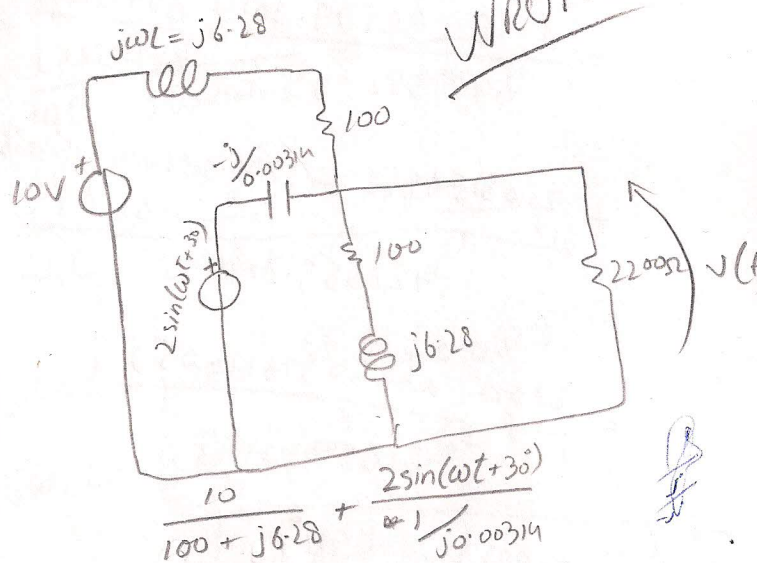 jωL = j6.28
100
-j/0.00314
10V
+
2sin(ωt+30)
+
100
j6.28
2200Ω
v(
10 / 100 + j6.28 + 2sin(ωt+30°) / -1/j0.00314